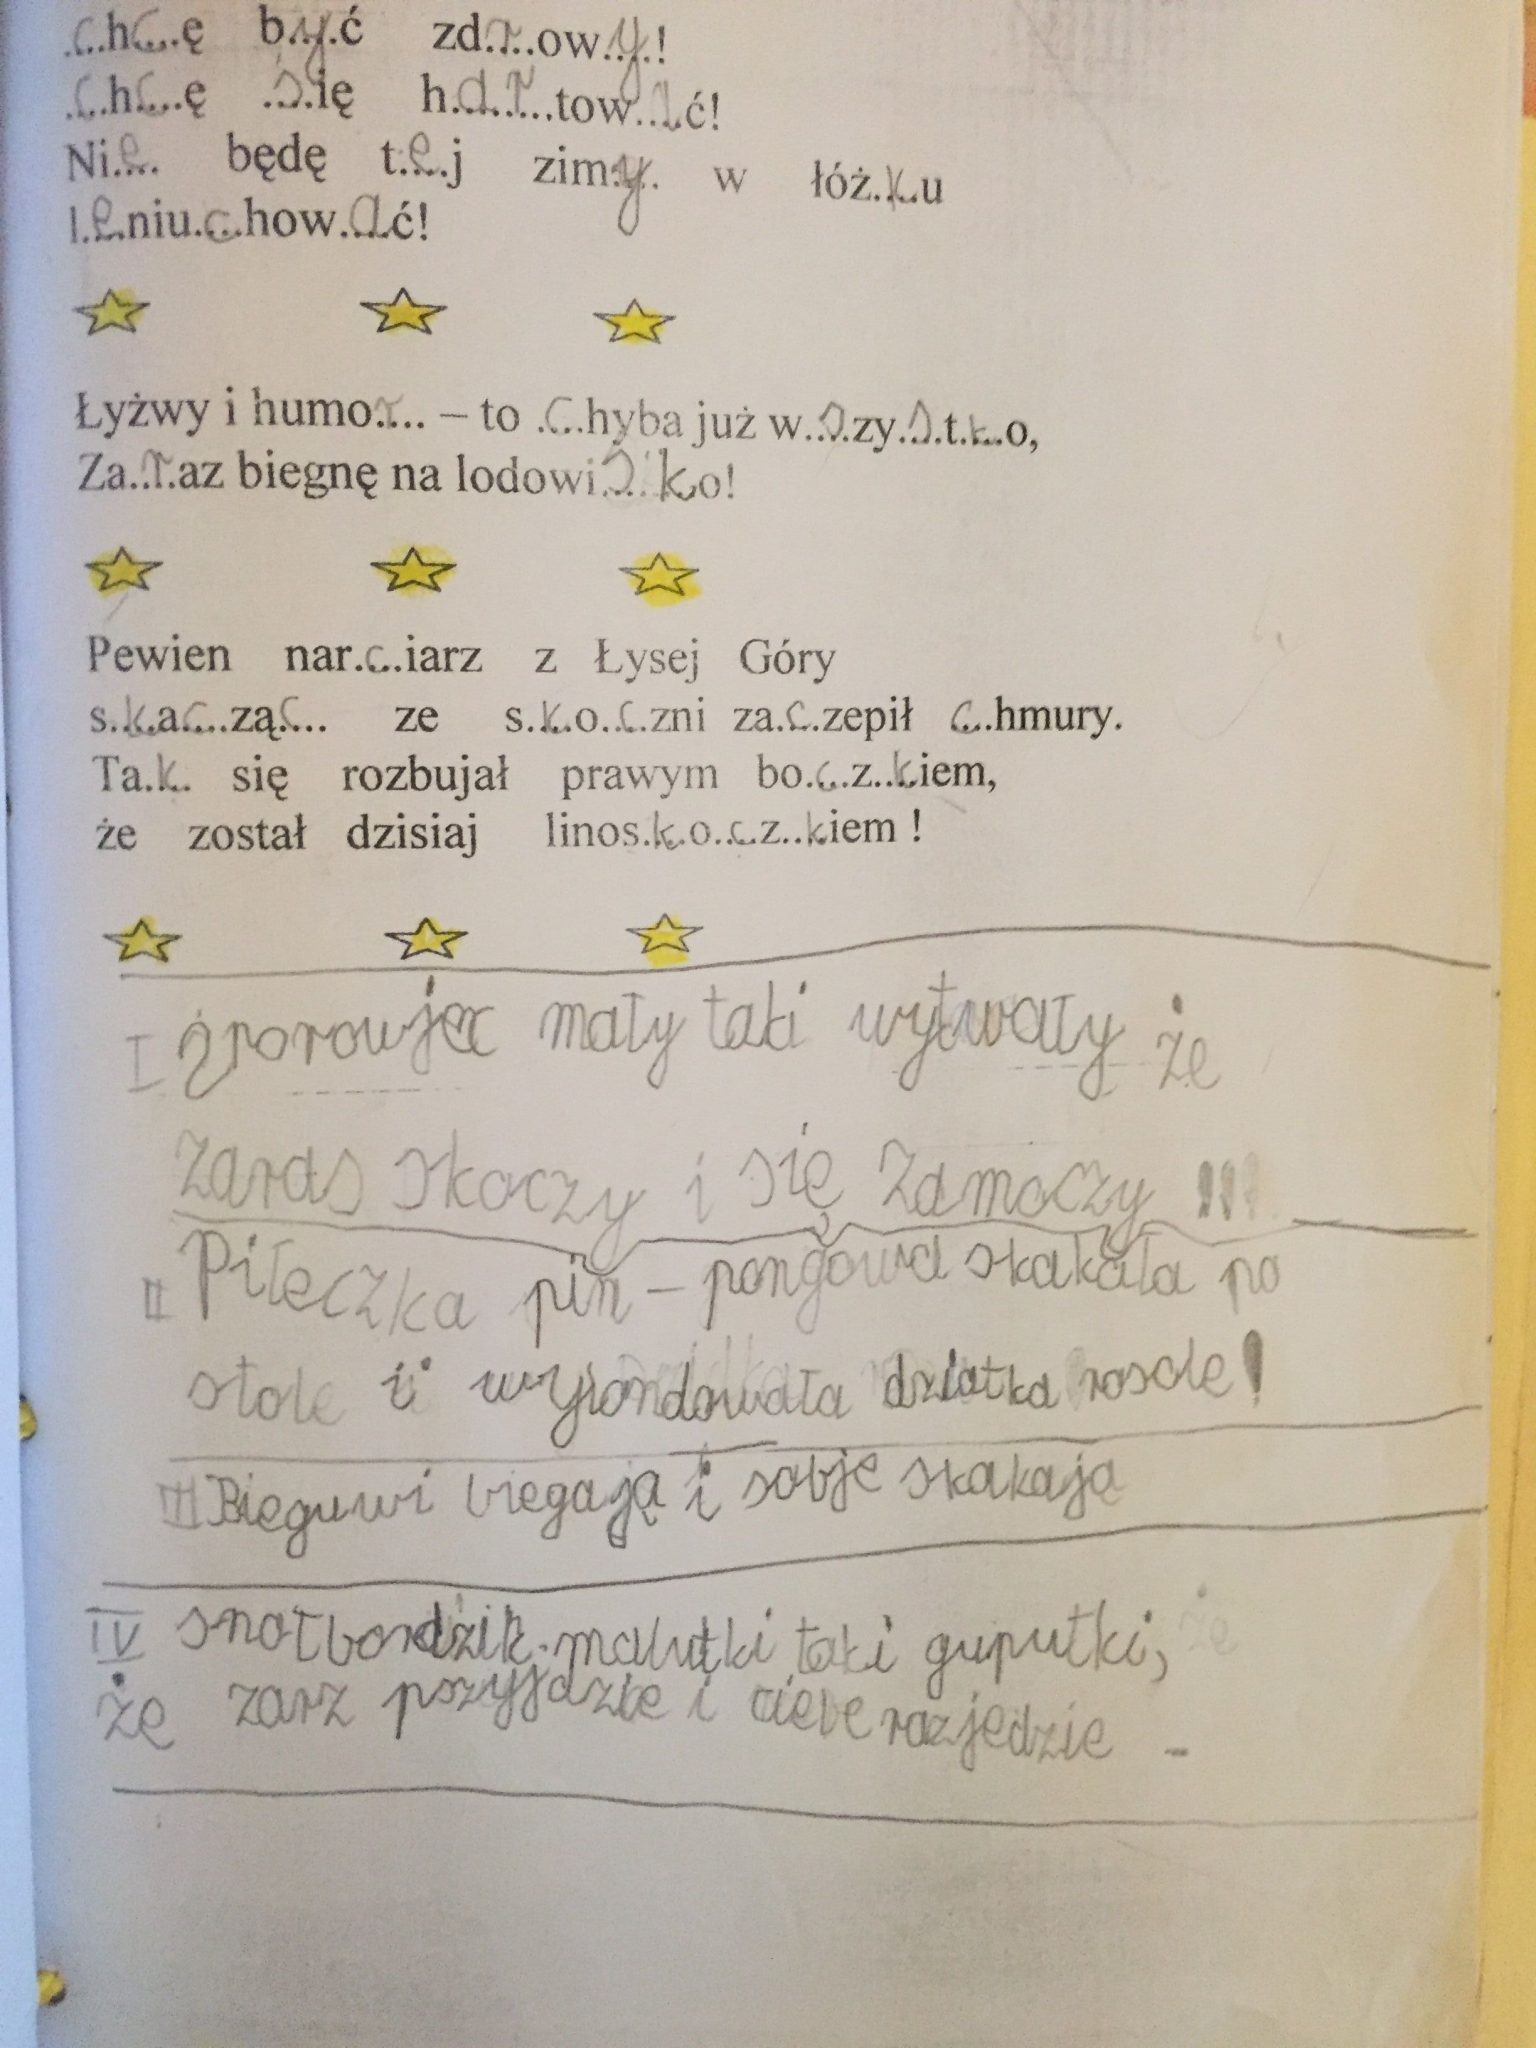 .c.hc...ę b.y.ć zd.r..ow.y.!
.c.hc...ę .s.ię h.a.r...tow..a.ć!
Ni.e.. będę t.e.j zim.y. w łóż.k.u
l.e.niu.c.how.a.ć!
Łyżwy i humor... – to .c.hyba już w..s.zy.s.t.k..o,
Za.r.az biegnę na lodowis.ko!
Pewien nar.c.iarz z Łysej Góry
s.k.ac..zą.c... ze s.k.o.c.zni za.c.zepił c..hmury.
Ta.k. się rozbujał prawym bo.c.z..kiem,
że został dzisiaj linos.k.o.c.z..kiem !
I mały taki wytwały że
zaras skoczy i się zamoczy !!!
II Piłeczka pin – pongowa skakała po
stole i dziatka rosole!
III Bieguwi biegają i sobje skakają
IV malutki taki guputki,
że zarz pszyjdzie i ciebe razjedzie -